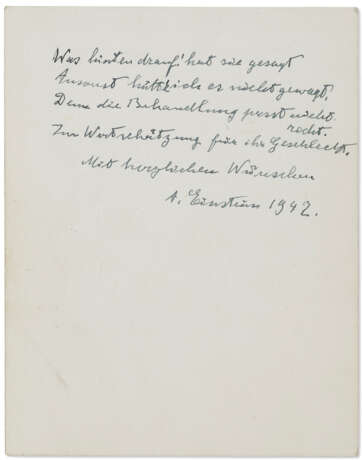 Was hinten drauf' hat sie gesagt
Ansonst hätt ich es nicht gewagt,
Denn die Behandlung passt nicht
recht.
Zur Wertschätzung für ihr Geschlecht.
Mit herzlichen Wünschen
A. Einstein 1942.